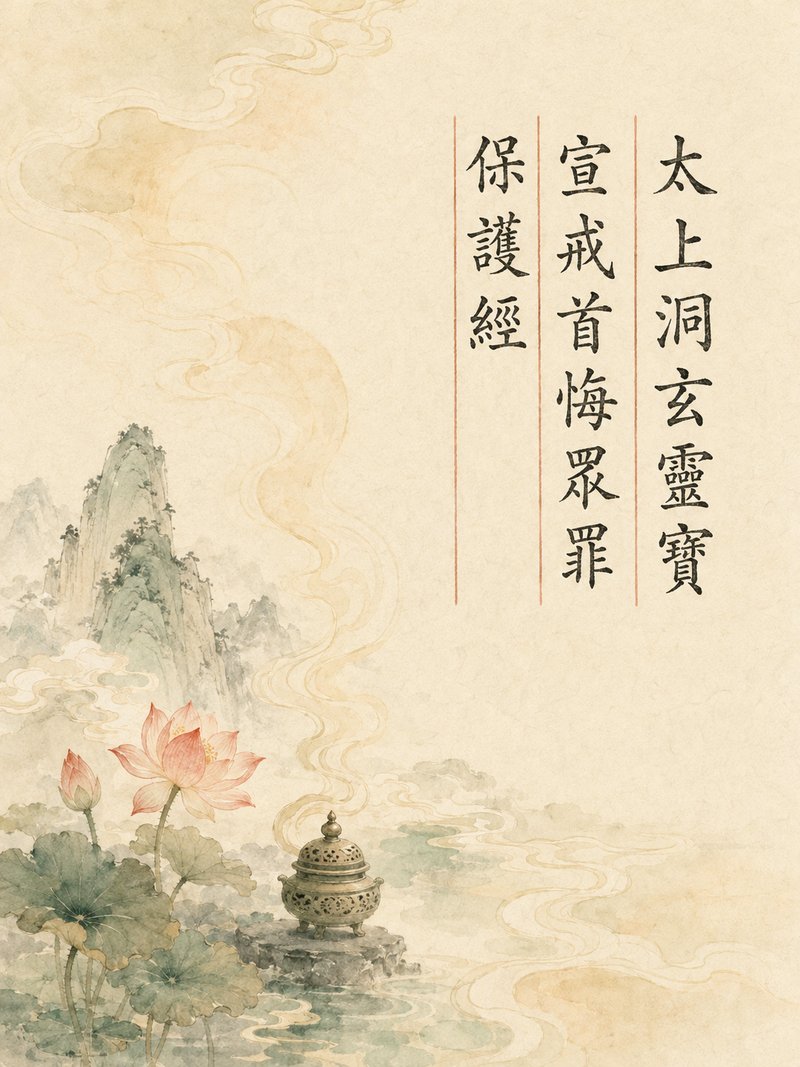 太上洞玄靈寶
宣戒首悔眾罪
保護經